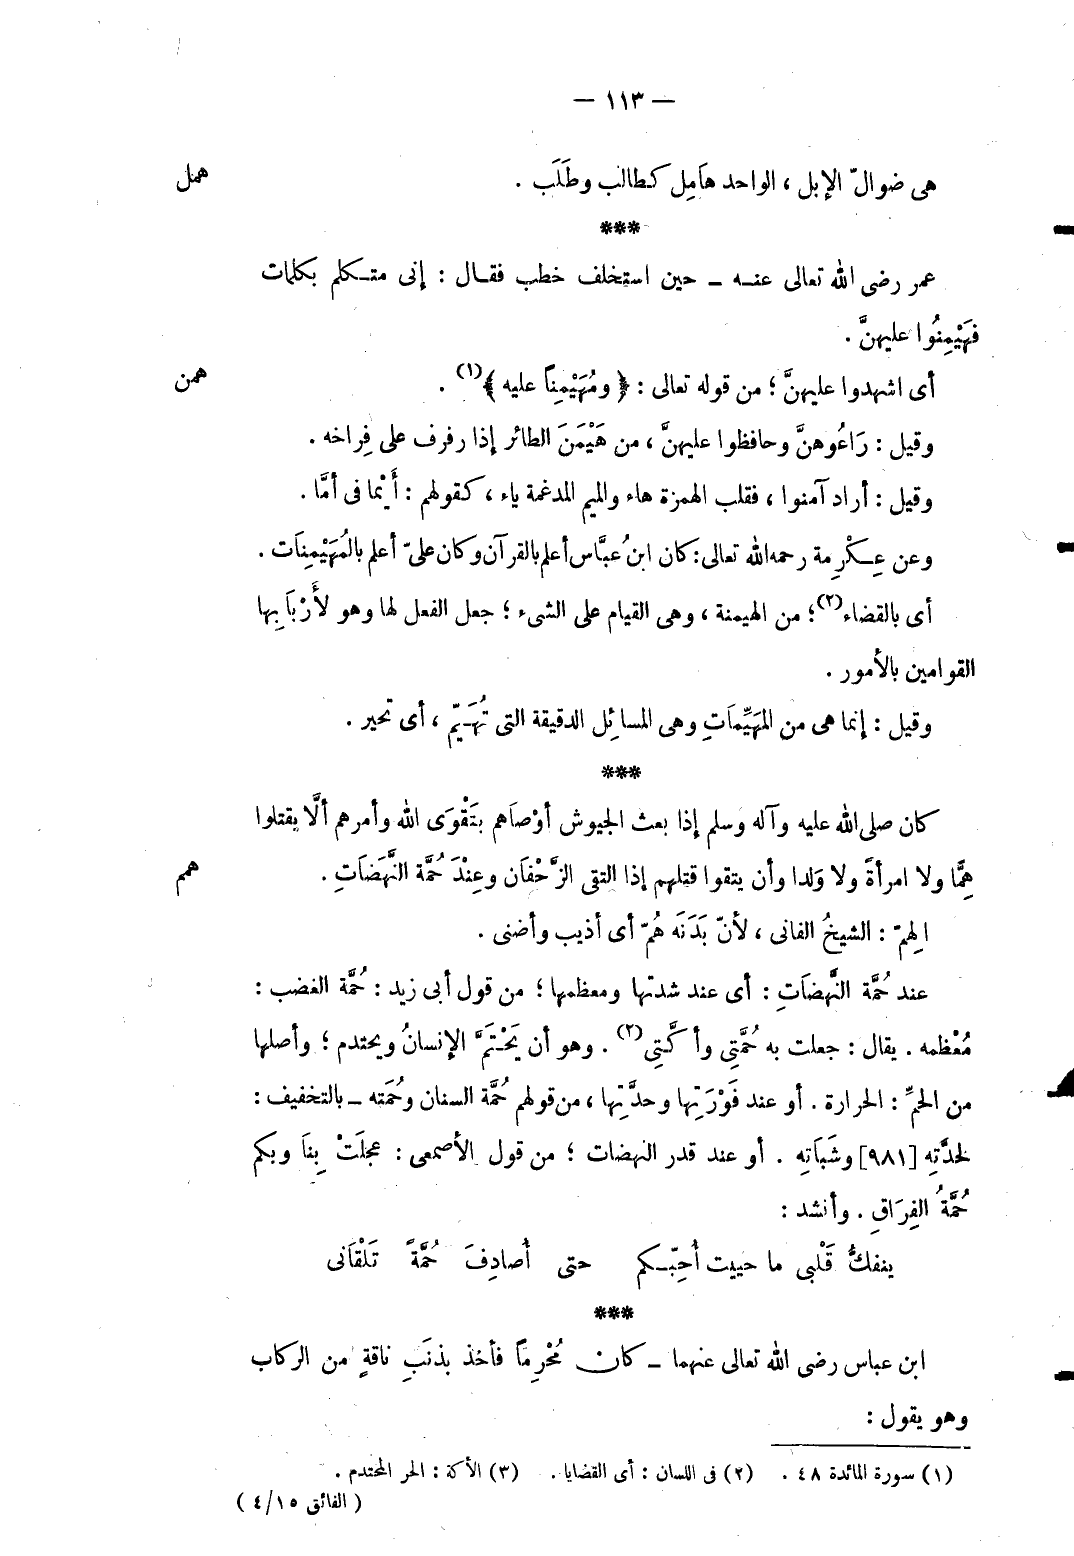 — ١١٣ —
هى ضوالّ الإبل ، الواحد هاَمِل كـطالب وطَلَب .
همل
***
عمر رضى الله تعالى عنـه ــ حين استخلف خطب فقـال : إنى متـكلم بكلمات
فَهَيْمِنُوا عليهنَّ .
أى اشهدوا عليهنَّ ؛ من قوله تعالى : ﴿ ومُهَيْمِناً عليه ﴾(١) .
همن
وقيل : رَاعُوهنَّ وحافظوا عليهنَّ ، من هَيْمَنَ الطائر إذا رفرف على فِراخه .
وقيل : أراد آمنوا ، فقلب الهمزة هاء والميم المدغمة ياء ، كـقولهم : أَيْما فى أمَّا .
وعن عِـكْرِمة رحمه الله تعالى: كان ابنُ عبَّاس أعلم بالقرآن وكان علىّ أعلم بالمُهَيْمِنَات .
أى بالقضاء(٢)؛ من الهيمنة ، وهى القيام على الشىء ؛ جعل الفعل لها وهو لأَرْبَابِها
القوامين بالأمور .
وقيل : إنما هى من المَهَيِّمَاتِ وهى المسائِل الدقيقة التى تُهَـيّم ، أى تحير .
***
كان صلى الله عليه وآله وسلم إذا بعث الجيوش أوْصَاهم بتَقْوَى الله وأمرهم ألَّا يقتلوا
هِمًّا ولا امرأةً ولا وَلدا وأن يتقوا قتلهم إذا التقى الزَّحْفَان وعِنْدَ حُمَّة النَّهَضَاتِ .
همم
الِهمّ : الشيخُ الفانى ، لأنّ بَدَنَه هُمّ أى أذيب وأضنى .
عند حُمَّة النَّهضَاتِ : أى عند شدتها ومعظمها ؛ من قول أبى زيد : حُمَّة الغضب :
مُعْظمه . يقال : جعلت به حُمَّتِى وأكَّتِى(٢) . وهو أن يَحْـتَمَّ الإنسانُ ويحتدم ؛ وأصلها
من الحمِّ : الحرارة . أو عند فَوْرَتِها وحدَّتِها ، من قولهم حُمَّة السنان وحُمَته ــ بالتخفيف :
لحدَّتِه [٩٨١] وشَبَاتِه . أو عند قدر النهضات ؛ من قول الأصمعى : عجلَتْ بِنَا وبكم
حُمَّةُ الفِرَاقِ . وأنشد :
ينفكُّ قَلْبى ما حييت أُحِبّـكم حتى أُصادِفَ حُمَّةً تَلْقَانى
***
ابن عباس رضى الله تعالى عنهما ــ كان مُحْرِماً فأخذ بذنَبِ ناقةٍ من الركاب
وهو يقول :
(١) سورة المائدة ٤٨ . (٢) فى اللسان : أى القضايا . (٣) الأكة : الحر المحتدم .
( الفائق ١٥/٤ )